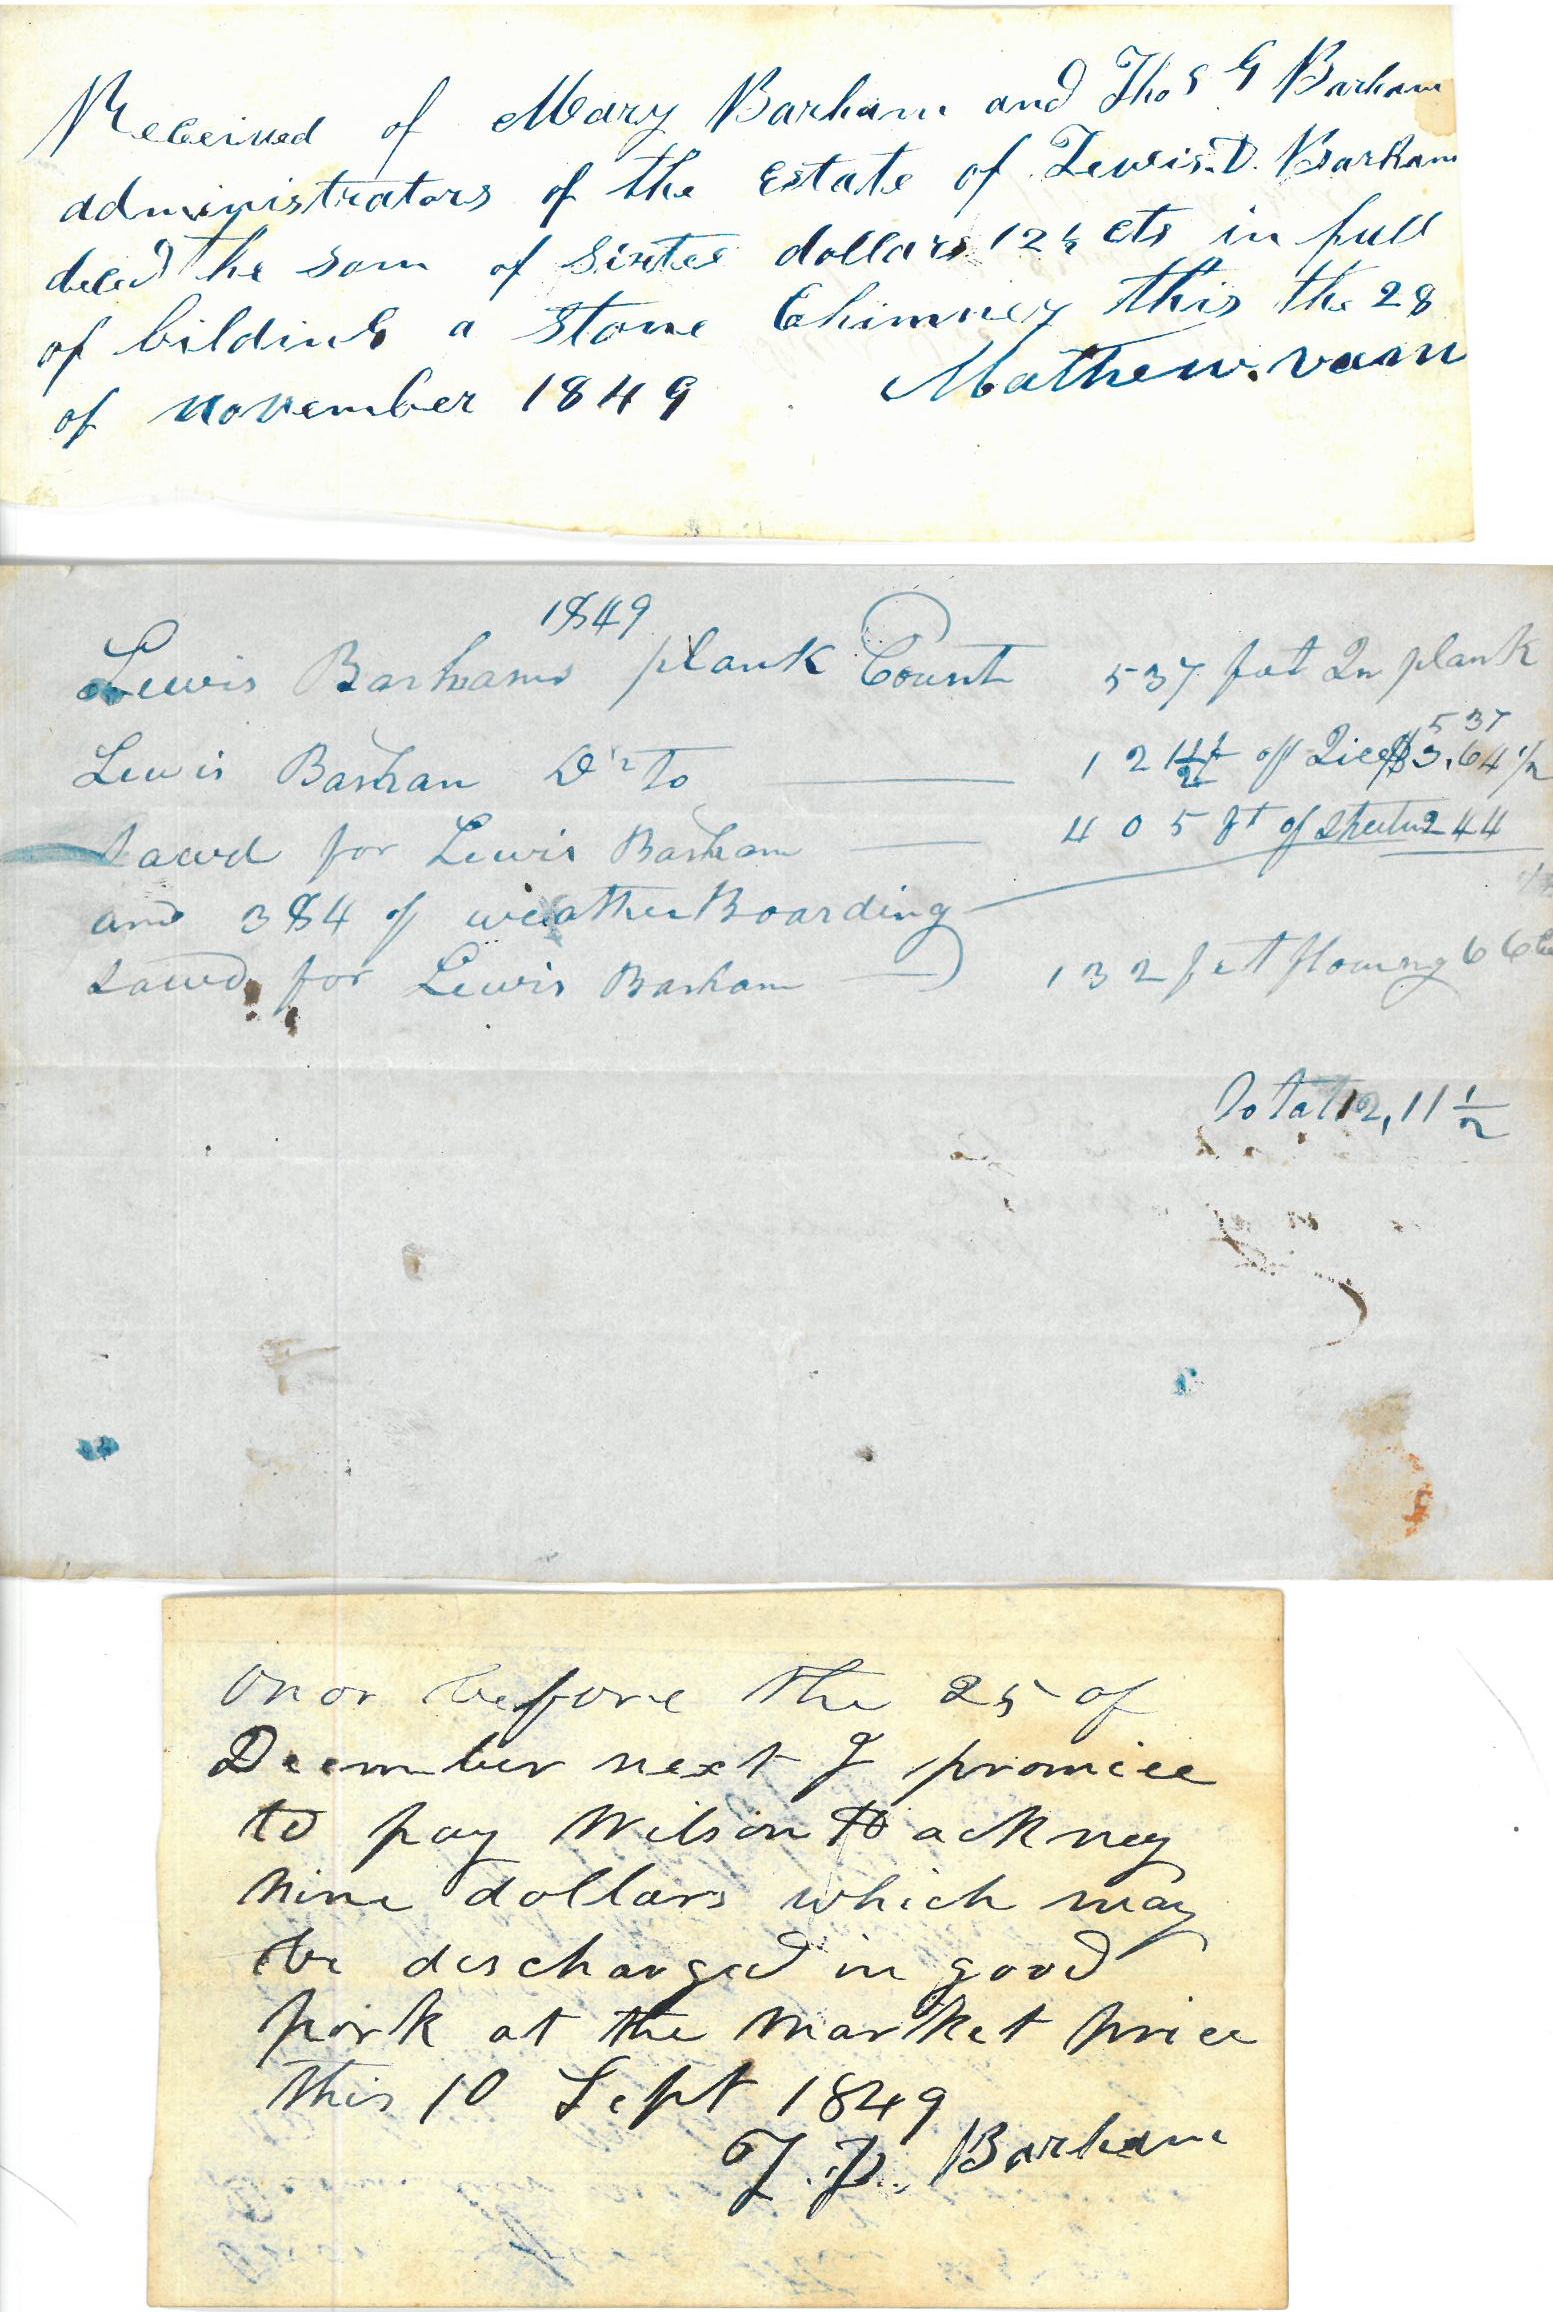 Received of Mary Barham and Thos G Barham
administrators of the Estate of Lewis. D. Barham
decd the som of sixtee dollars 12½ cts in full
of bilding a Stone Chimney this the 28
of november 1849 Mathew. vann
1849
Lewis Barhams plank Count 537 fut In plank
5 37
Lewis Barham Dr to 1 21½ ft of $3.64 1/2
sawd for Lewis Barham 405 ft of 2 44
and 384 of weather Boarding
sawd for Lewis Barham 132 fet flouring 66
Total 12,11 1/2
on or before the 25 of
Deember next I promice
to pay Wilson Hackney
nine dollars which may
be descharged in good
pork at the market price
this 10 Sept 1849
L. D. Barham